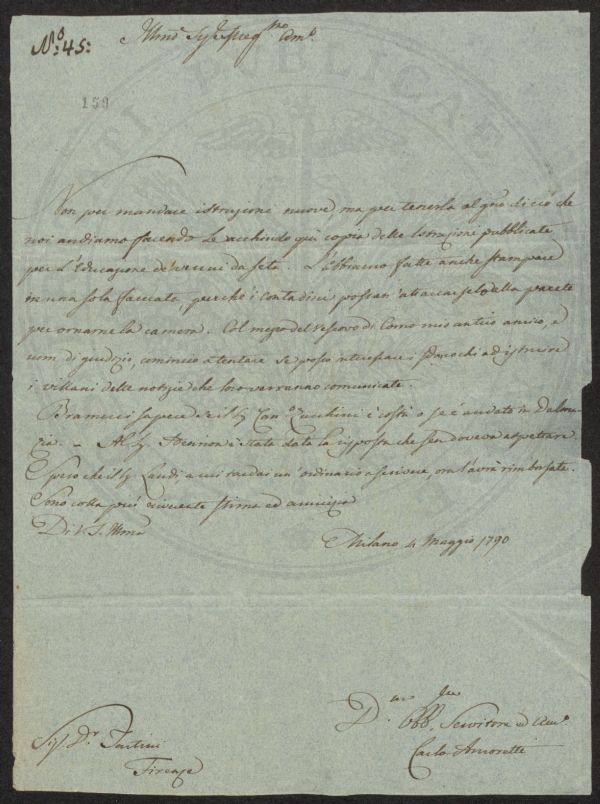 N.o 45:
Illmo Sig.r e Preg.mo Am.o
159
Non per mandare istruzioni nuove ma per tenerla al giorno di ciò che
noi andiamo facendo Le acchiudo qui copia delle Istruzioni pubblicate
per l'Educazione de' vermi da seta. L'abbiamo fatte anche stampare
in una sola facciata, perchè i contadini possan' attaccarselo alla parete
per ornarne la camera. Col mezo del Vescovo di Como mio antico amico, e
uom di giudizio, comincio a tentare se posso interessare i Parochi ad istruire
i villani delle notizie che loro verranno comunicate.
Bramerei sapere se il Sig. Con.e Zucchini è costì o se è andato in Dalma-
zia. - Al Sig. è stata data la risposta che se n doveva aspettare.
Spero che il Sig. Landi, a cui tardai un' ordinario a scrivere, ora l'avrà rimborsata.
Sono colla più riverente stima ed amicizia
Di V. S. Illma
Milano 4 Maggio 1790
D.mo Obb. Servitore ed Am.o
Carlo Amoretti
Sig. D.r Tartini
Firenze
PUBLICAE